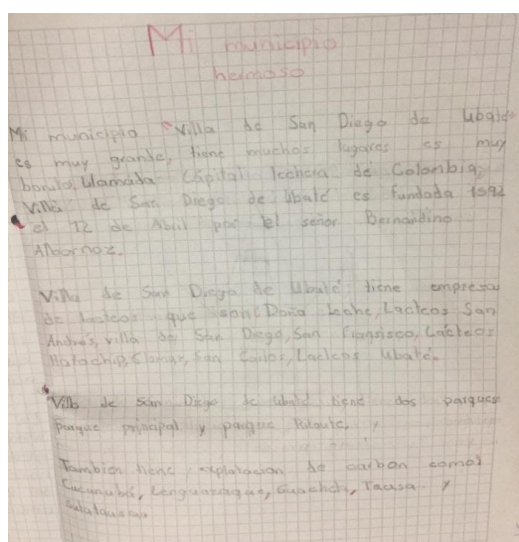 Mi municipio
hermoso
Mi municipio "Villa de San Diego de Ubaté
es muy grande, tiene muchos lugares es muy
bonito, llamada Capital lechera de Colombia,
Villa de San Diego de Ubaté es fundada 1592
el 12 de Abril por el señor Bernardino
Albornoz.
Villa de San Diego de Ubaté tiene empresas
de lacteos que son: Doña Leche, Lacteos San
Andrés, villa de San Diego, San Fransisco, Lacteos
San Carlos, Lacteos Ubaté.
Villa de San Diego de Ubaté tiene dos parques
parque principal y parque y
Tambien tiene explotacion de carbon como
Cucunubá, Lenguazaque, Guachetá, Tausa y